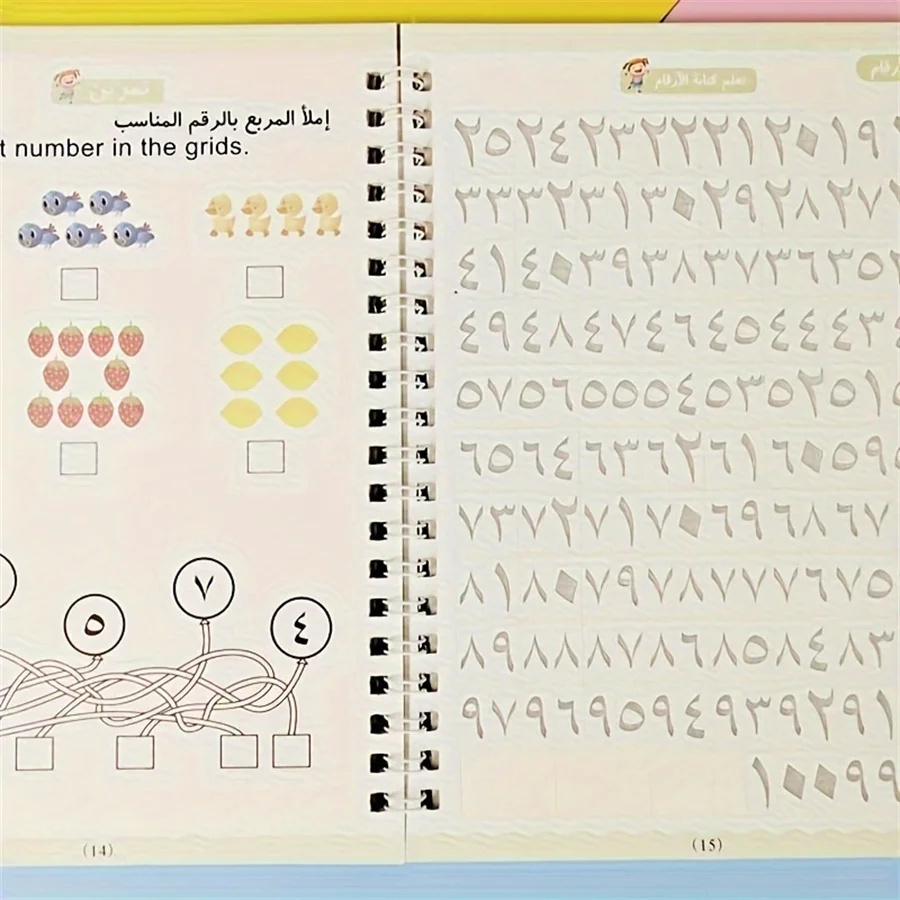 تمرين
إملأ المربع بالرقم المناسب
number in the grids.
٧
٥
٤
(14)
تعلم كتابة الأرقام
٢٥ ٢٤ ٢٣ ٢٢ ٢١ ٢٠ ١٩
٣٣ ٣٢ ٣١ ٣٠ ٢٩ ٢٨ ٢٧
٤١ ٤٠ ٣٩ ٣٨ ٣٧ ٣٦ ٣٥
٤٩ ٤٨ ٤٧ ٤٦ ٤٥ ٤٤ ٤٣
٥٧ ٥٦ ٥٥ ٥٤ ٥٣ ٥٢ ٥١
٦٥ ٦٤ ٦٣ ٦٢ ٦١ ٦٠ ٥٩
٧٣ ٧٢ ٧١ ٧٠ ٦٩ ٦٨ ٦٧
٨١ ٨٠ ٧٩ ٧٨ ٧٧ ٧٦ ٧٥
٨٩ ٨٨ ٨٧ ٨٦ ٨٥ ٨٤ ٨٣
٩٧ ٩٦ ٩٥ ٩٤ ٩٣ ٩٢ ٩١
١٠٠ ٩٩
(15)